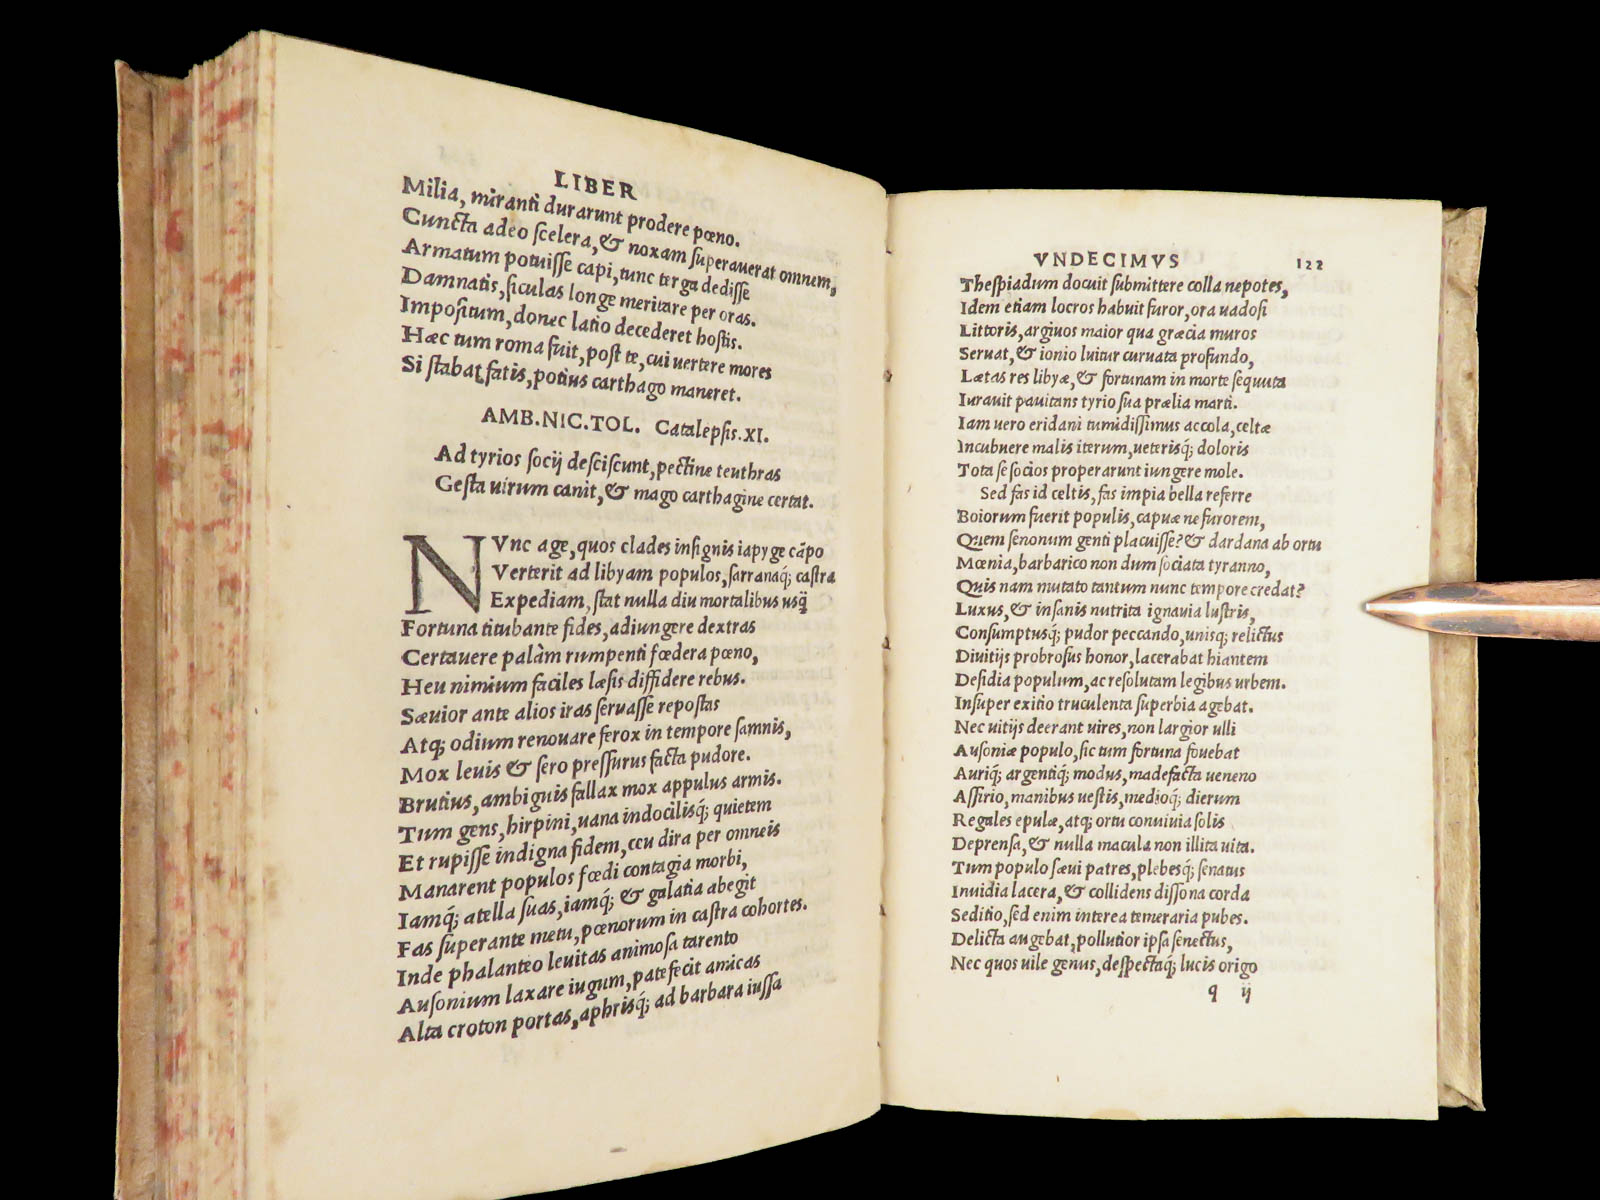 LIBER
Milia, miranti durarunt prodere pœno.
Cuncta adeo ſcelera, & noxam ſuperauerat omnem,
Armatum potuiſſe capi, tunc terga dediſſe
Damnatis, ſiculas longe meritare per oras.
Impoſitum, donec latio decederet hoſtis.
Hæc tum roma fuit, poſt te, cui uertere mores
Si ſtabat fatis, potius carthago maneret.
AMB.NIC.TOL. Catalepſis.XI.
Ad tyrios ſocij deſciſcunt, pectine teuthras
Geſta uirum canit, & mago carthagine certat.
NVnc age, quos clades inſignis iapyge cãpo
Verterit ad libyam populos, ſarranaq́; caſtra
Expediam, ſtat nulla diu mortalibus uſq̃
Fortuna titubante fides, adiungere dextras
Certauere palàm rumpenti fœdera pœno,
Heu nimium faciles læſis diffidere rebus.
Sæuior ante alios iras ſeruaſſe repoſtas
Atq; odium renouare ferox in tempore ſamnis,
Mox leuis & ſero preſſurus facta pudore.
Brutius, ambiguis fallax mox appulus armis.
Tum gens, hirpini, uana indocilisq́; quietem
Et rupiſſe indigna fidem, ceu dira per omneis
Manarent populos fœdi contagia morbi,
Iamq́; atella ſuas, iamq́; & galatia abegit
Fas ſuperante metu, pœnorum in caſtra cohortes.
Inde phalanteo leuitas animoſa tarento
Auſonium laxare iugum, patefecit amicas
Alta croton portas, aphrisq́; ad barbara iuſſa
VNDECIMVS 122
Theſpiadum docuit ſubmittere colla nepotes,
Idem etiam locros habuit furor, ora uadoſi
Littoris, argiuos maior qua græcia muros
Seruat, & ionio luitur curuata profundo,
Lætas res libyæ, & fortunam in morte ſequuta
Iurauit pauitans tyrio ſua prælia marti.
Iam uero eridani tumidiſſimus accola, celtæ
Incubuere malis iterum, ueterisq́; doloris
Tota ſe ſocios properarunt iungere mole.
Sed fas id celtis, fas impia bella referre
Boiorum fuerit populis, capuæ ne furorem,
Quem ſenonum genti placuiſſe? & dardana ab ortu
Mœnia, barbarico non dum ſociata tyranno,
Quis nam mutato tantum nunc tempore credat?
Luxus, & inſanis nutrita ignauia luſtris,
Conſumptusq́; pudor peccando, unisq; relictus
Diuitijs probroſus honor, lacerabat hiantem
Deſidia populum, ac reſolutam legibus urbem.
Inſuper exitio truculenta ſuperbia agebat.
Nec uitijs deerant uires, non largior ulli
Auſoniæ populo, ſic tum fortuna fouebat
Auriq́; argentiq́; modus, madefacta ueneno
Aſſirio, manibus ueſtis, medioq́; dierum
Regales epulæ, atq; ortu conuiuia ſolis
Deprenſa, & nulla macula non illita uita.
Tum populo ſæui patres, plebesq́; ſenatus
Inuidia lacera, & collidens diſſona corda
Seditio, ſed enim interea temeraria pubes.
Delicta augebat, pollutior ipſa ſenectus,
Nec quos uile genus, deſpectaq́; lucis origo
q ij